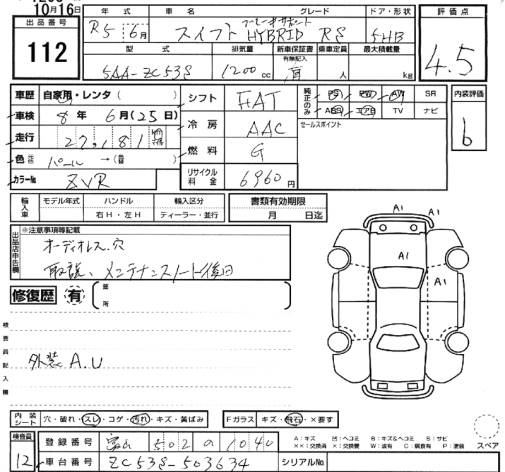 10月16日
出品番号
112
年式 車名 グレード ドア・形状 評価点
R5年 6月 スイフト HYBRID RS 5HB
4.5
型式 排気量 新車保証書 有無記入 乗車定員 最大積載量
5AA-ZC53S 1200cc 有 人 kg
車歴 自家用・レンタ( )
車検 8年 6月(25日)
走行 27,181
色 パール →( )
カラーNo ZVR
シフト FAT
冷房 AAC
燃料 G
リサイクル料金 6960円
純正のみ PS PW AW SR
ABS エアB TV ナビ
セールスポイント
内装評価
b
輸入車 モデル年式 ハンドル 輸入区分
右H・左H ディーラー・並行
書類有効期限
月 日迄
出品店申告欄
※注意事項等記載
オーディオレス.穴
取説、メンテナンスノート後日
修復歴 有 箇所
検査員記入欄
外装 A.U
A1
A1 A1
A1
A1
内装シート 穴・破れ・スレ・コゲ・汚れ・キズ・黄ばみ
Fガラス キズ・飛石・×要す
検査員 12
登録番号 富山 502 の 1040
車台番号 ZC53S-503634
シリアルNo
A:キズ B:キズ&ヘコミ S:サビ
P:塗装 スペア